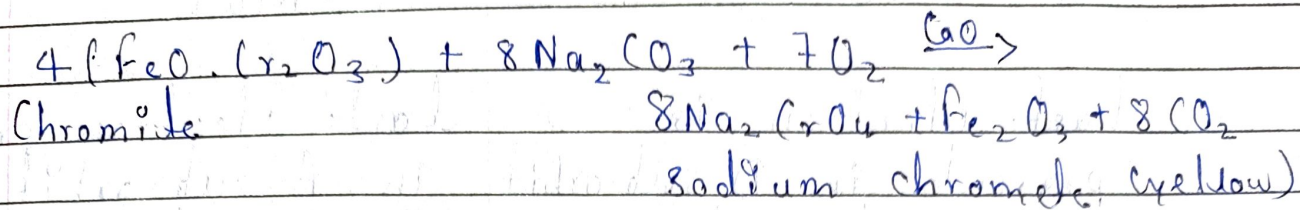 4(FeO.Cr₂O₃) + 8Na₂CO₃ + 7O₂ CaO→
Chromite 8Na₂CrO₄ + Fe₂O₃ + 8CO₂
Sodium chromate (yellow)